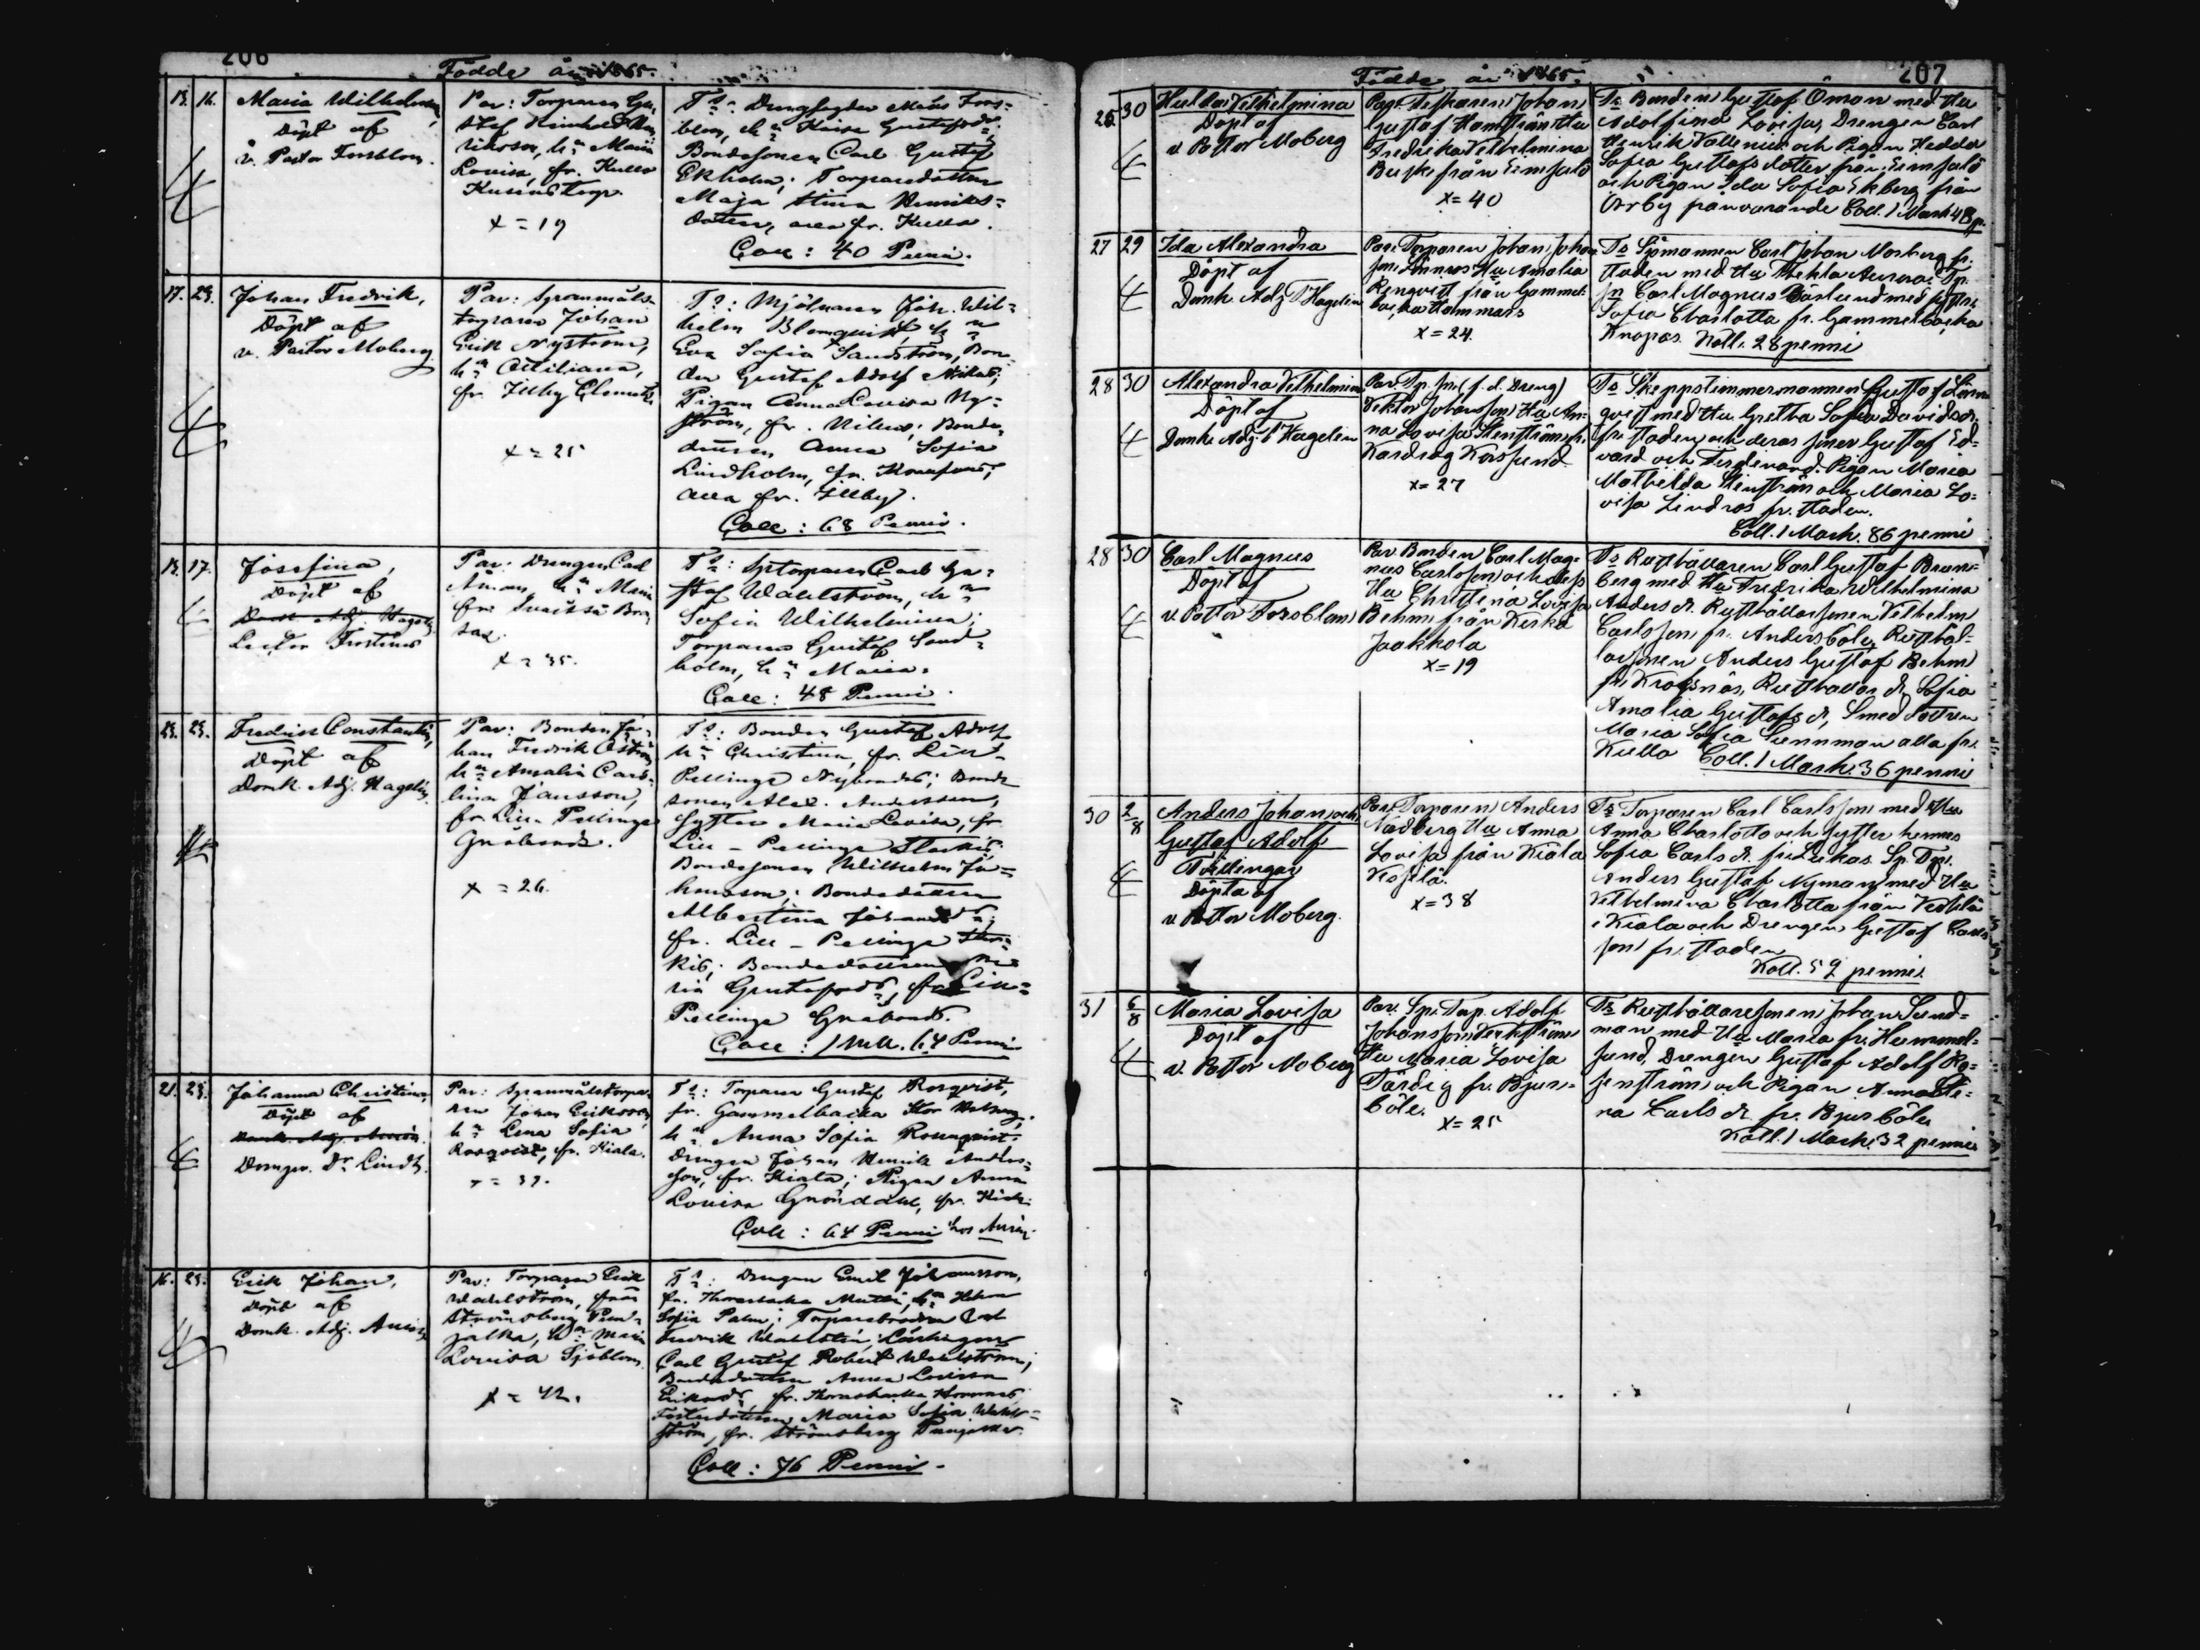 206
Födde år 1865.
15. 16. Maria Wilhelmina,
Döpt af
v. Pastor Forsblom.
Par: Torparen Gu-
staf Reinhold
hn Maria
Lovisa, fr. Kullo
Kusas Torp.
x = 19
Ts: Drengfogden
hn Kaisa Gustafsdr.
Bondesonen Carl Gustaf
Ekholm; Torparedottren
Maja Stina Henriks-
dotter, alla fr. Kullo.
Coll: 40 Penni.
17. 23. Johan Fredrik,
Döpt af
v. Pastor Moberg
Par: Spanmåls-
torparen Johan
Erik Nyström,
hn Ceciliana,
fr. Illby
x = 25
Ts: Mjölnaren Joh. Wil-
helm Blomqvist, hn
Eva Sofia Sandström, Bon-
den Gustaf Adolf
Pigan Anna Lovisa Ny-
ström, fr. Bonde-
Anna Sofia
Lindholm, fr.
alla fr. Illby.
Coll: 68 Penni.
13. 17. Josefina,
Döpt af
Domk. Adj. Hagelin
Lector
Par: Drengen Carl
hn Maria
från
x = 35.
Ts: Sptorparen Carl Gu-
staf Wahlström, hn
Sofia Wilhelmina;
Torparen Gustaf Sand-
holm, hn Maria.
Coll: 48 Penni.
23. 23. Fredrik Constantin,
Döpt af
Domk. Adj. Hagelin.
Par: Bonden Jo-
han Fredrik Öström
hn Amalia Caro-
lina Jansson,
fr. Lill-Pellinge
x = 26.
Ts: Bonden Gustaf Adolf
hn Christina, fr. Lill-
Pellinge Nybondas; Bonde-
sonen Alex. Andersson,
Syster Maria Lovisa, fr.
Lill-Pellinge
Bondesonen Wilhelm Jo-
hansson; Bondedottren
Albertina Johansdr;
fr. Lill-Pellinge
Bondedottren Ma-
ria Gustafsdr, fr. Lill-
Pellinge
Coll: 1 Mk. 64 Penni
21. 23. Johanna Christina,
Döpt af
Domk. Adj.
Domprv. Dr Lindh.
Par: Spanmålstorpa-
ren Johan Eriksson,
hn Lena Sofia
Rosqvist, fr. Kiala.
Ts: Torparen Gustaf Rosqvist,
fr. Gammelbacka Stor
hn Anna Sofia Rosenqvist.
Drengen Johan Henrik Anders-
son, fr. Kiala; Pigan Anna
Lovisa Gröndahl, fr.
Coll: 64 Penni
16. 23. Erik Johan,
Döpt af
Domk. Adj.
Par: Torparen Erik
Wahlström, från
Strömsberg
hn Maria
Lovisa Sjöblom.
x = 42.
Ts: Drengen Emil Johansson,
fr.
Sofia Palm; Torparebrodren Carl
Fredrik Wahlström;
Carl Gustaf Robert Wahlström;
Bondedottren Anna Lovisa
Eriksdr, fr.
Maria Sofia Wahl-
ström, fr. Strömsberg
Coll: 76 Penni.
207
Födde år 1865.
26 30 Hulda Vilhelmina
Döpt af
v Pastor Moberg
Par. Fiskaren Johan
Gustaf Hamström Hu
Fredrika Vilhelmina
Buske från Eimsalö
x = 40
Ts Bonden Gustaf Öman med Hu
Adolfina Lovisa, Drengen Carl
Henrik Vallenius och Pigan Hedda
Sofia Gustafsdotter från Eimsalö
och Pigan Ida Sofia Ekberg från
Orby frånvarande Coll. 1 Mark 48 p.
27 29 Ida Alexandra
Döpt af
Domk. Adj. Hagelin
Par. Torparen Johan Johan
son Lönnros Hu Amalia
Renqvist från Gammel-
backa Hommars
x = 24.
Ts Sjömannen Carl Johan Mosberg fr.
staden med Hu Thekla Aurora. Tp.
sn Carl Magnus Väslund med syster
Sofia Charlotta fr. Gammelbacka
Knapas. Koll. 28 penni
28 30 Alexandra Vilhelmina
Döpt af
Domk. Adj. Hagelin
Par. Tp. sn (f. d. Dreng)
Viktor Johansson Hu An-
na Lovisa Stenström fr.
Kardrag Korssund
x = 27
Ts Skeppstimmermannen Gustaf Lönn
qvist med Hu Gretha Sofia Davidsdr.
fr. staden och deras söner Gustaf Ed-
vard och Ferdinand. Pigan Maria
Mathilda Stenström och Maria Lo-
visa Lindros fr. staden.
Coll. 1 Mark. 86 penni
28 30 Carl Magnus
Döpt af
v. Pastor Forsblom
Par. Bonden Carl Mag-
nus Carlsson och dess
Hu Christina Lovisa
Behm från Kerko
Jaakkola
x = 19
Ts Rusthållaren Carl Gustaf Brun-
berg med Hu Fredrika Wilhelmina
Anders dr. Rusthållarsonen Vilhelm
Carlsson fr. Andersböle, Rusthål-
larsonen Anders Gustaf Behm
fr. Kroksnäs, Rusthållar dr. Sofia
Amalia Gustafs dr, Smed dottren
Maria Sofia Sunnman alla fr.
Kullo Coll. 1 Mark. 36 penni
30 2/8 Anders Johan och
Gustaf Adolf
Tvillingar
Döpta af
v Pastor Moberg.
Par. Torparen Anders
Nådberg Hu Anna
Lovisa från Kiala
Veckjila.
x = 38
Ts Torparen Carl Carlsson med Hu
Anna Charlotta och syster hennes
Sofia Carls dr. fr. Lukas. Sp. Tpr.
Anders Gustaf Nyman med Hu
Vilhelmina Charlotta från
i Kiala och Drengen Gustaf Carls
son fr. staden
Koll. 59 penni.
31 6/8 Maria Lovisa
Döpt af
v. Pastor Moberg
Par. Sp. Torp. Adolf
Johansson
Hu Maria Lovisa
Färdig fr. Bjur-
böle.
x = 25
Ts Rusthållaresonen Johan Sund-
man med Hu Maria fr. Hummel-
sund, Drengen Gustaf Adolf Ro-
senström och Pigan Anna Le-
na Carls dr. fr. Bjurböle
Koll. 1 Mark. 32 penni